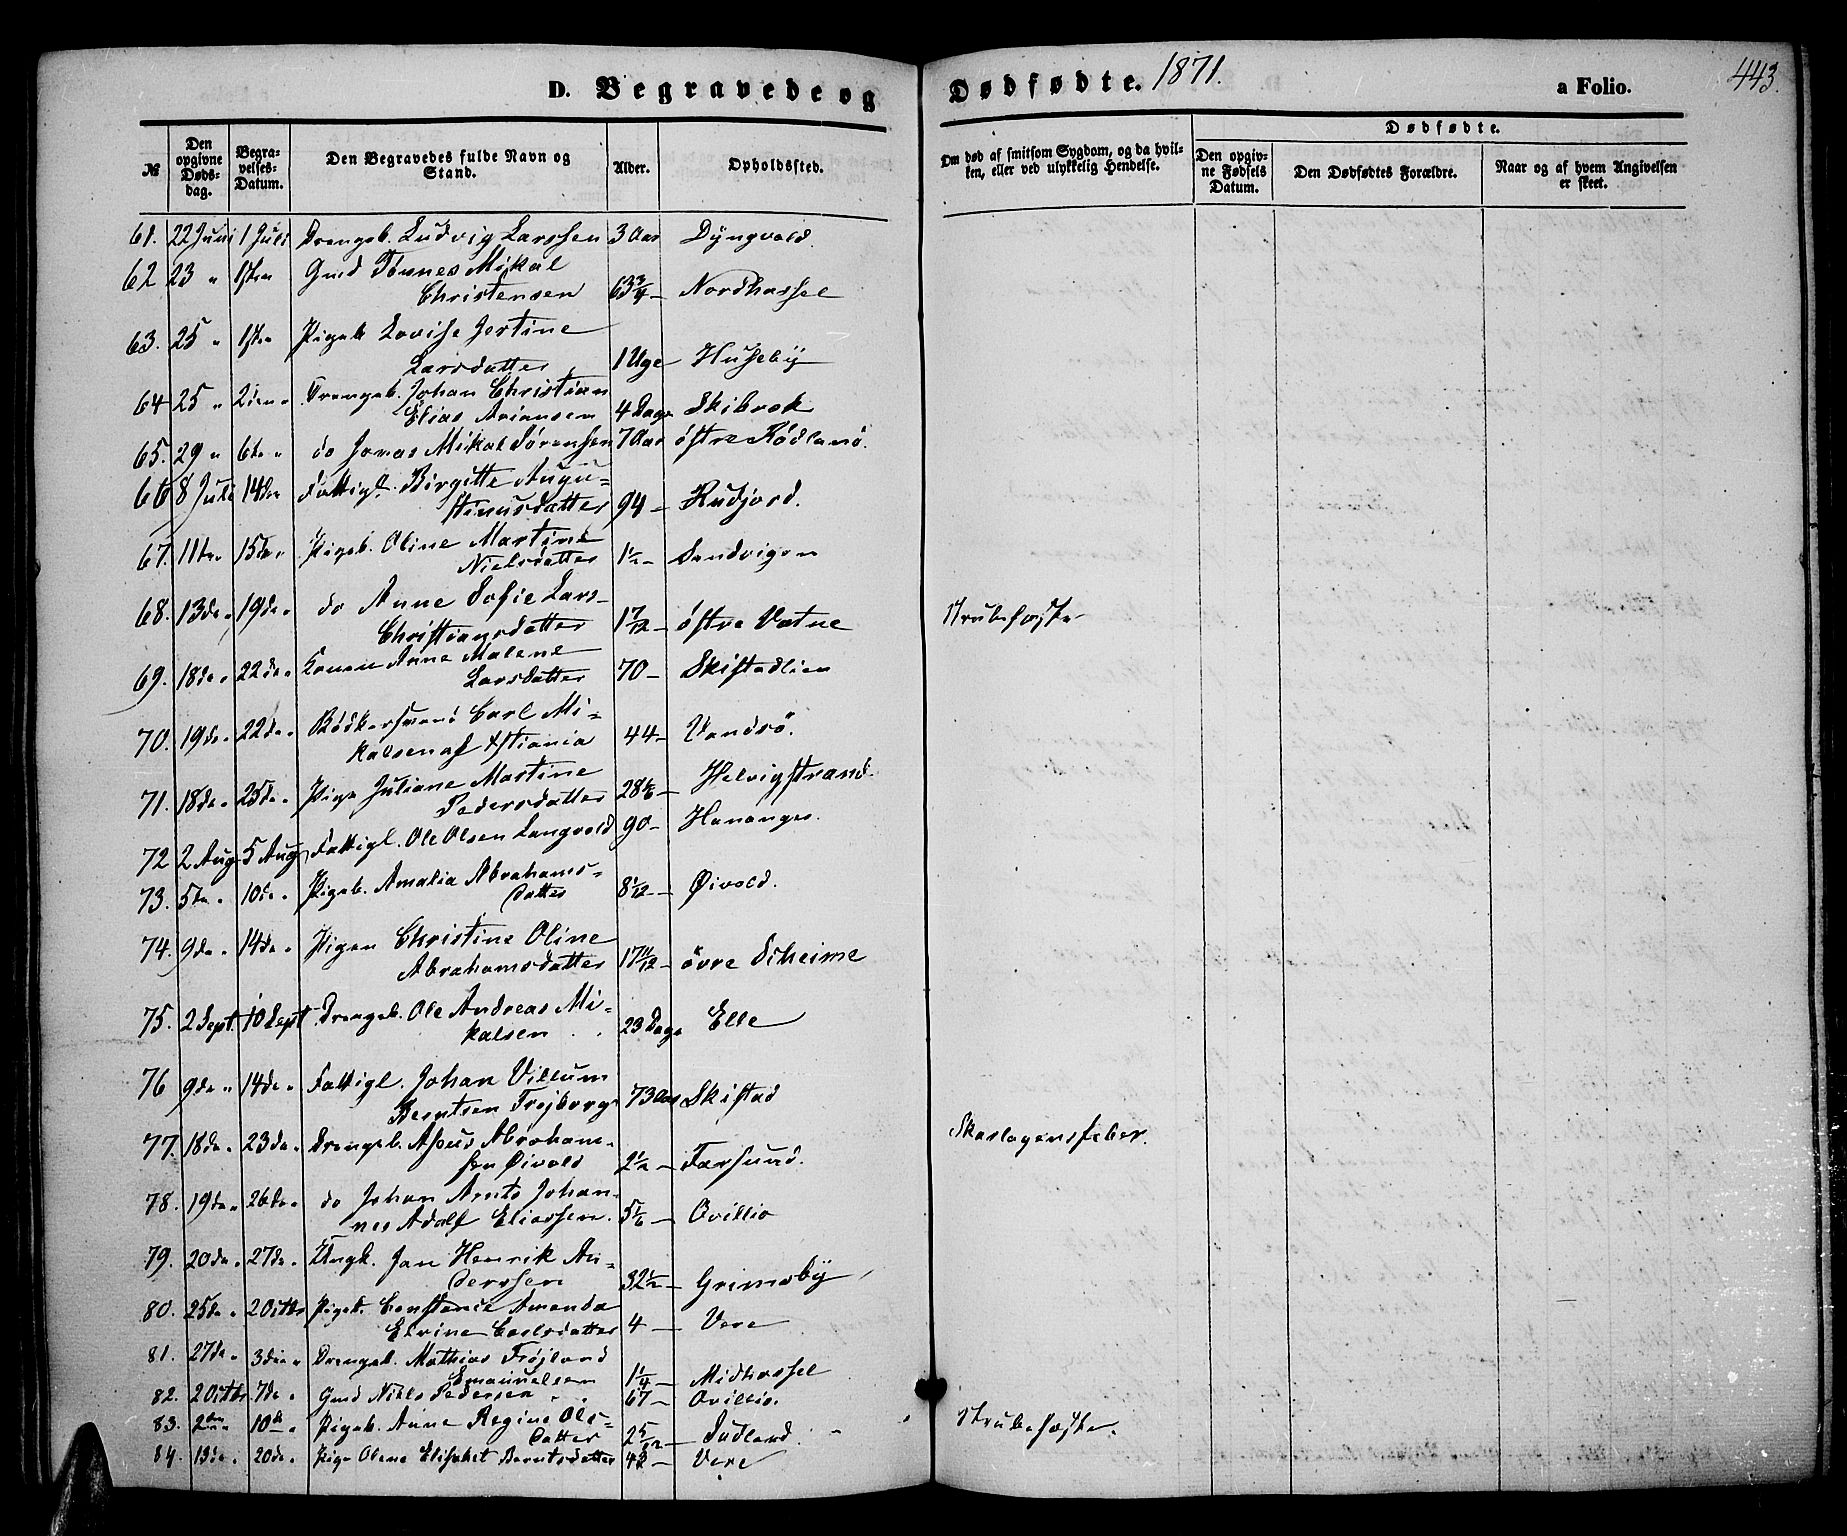 D. Begravede og Dødfødte. 1871. a Folio. 443.
№ Den opgivne Døds-dag. Begra-velses-Datum. Den Begravedes fulde Navn og Stand. Alder. Opholdssted. Om død af smitsom Sygdom, og da hvil-ken, eller ved ulykkelig Hendelse. Dødfødte. Den opgiv-ne Fødsels Datum. Den Dødfødtes Forældre. Naar og af hvem Angivelsen er skeet.
61. 22 Juni 1 Juli Drengeb. Ludvig Larssen 3 Aar Dyngvold.
62 23 " 1ste " Gmd Tönnes Mikal
Christensen 63 3/4 – Nordhassel
63. 25 " 1ste " Pigeb. Lovise Jertine
Larsdatter 1 Uge Huseby
64 25 " 2den " Drengeb. Johan Christian
Elias Ariansen 4 Dage Skibrok
65. 29 " 6te " do Jonas Mikal Sørensen 7 Aar östre Rødland.
66 8 Juli 14de Fattigl. Birgitte Augu=
stinusdatter 94 – Rudjord.
67. 11te " 15de " Pigeb. Oline Martine
Nielsdatter 1 1/2 – Sandvigen
68. 13de " 19de " do Anne Sofie Lars-
Christiansdatter 1 7/12 – östre Vatne Strubehoste
69. 18de " 22de " Konen Anne Malene
Larsdatter 70 – Skistadlien
70. 19de " 22de " Bödkersvend Carl Mi=
kalsen af Xstiania 44 – Vandsö.
71. 18de " 25de " Pige Juliane Martine
Pedersdatter 28 1/6 – Helvigstrand.
72 2 Aug 5 Aug Fattigl. Ole Olsen Langvold 90 – Hananger.
73. 5te " 10de " Pigeb. Amalia Abrahams-
datter 8 1/12 – Øivold.
74. 9de " 14de " Pigen Christine Oline
Abrahamsdatter 17 11/12 – övre Skeime
75. 2 Sept. 10 Sept Drengeb. Ole Andreas Mi-
kalsen 23 Dage Elle
76 9de " 14de " Fattigl. Johan Villum
Berntsen Frøjborg 73 Aar Skistad
77. 18de " 23de " Drengeb. Asser Abraham-
sen Øivold 2 1/2 – Farsund. Skarlagensfeber.
78. 19de " 26de " do Johan Arnts Johan-
nes Adolf Eliassen. 5 1/6 – Ovillio
79. 20de " 27de " Ungk. Jan Henrik An-
derssen 32 1/2 – Grimsby
80. 25de " 2 Octbr Pigeb. Constance Amanda
Elvine Carlsdatter 4 – Vere
81. 27de " 3die " Drengeb. Mathias Frøjland
Emanuelsen 1 1/4 – Midhassel
82. 2 Octbr 7de " Gmd Niels Pedersen 67 – Ovillio.
83. 2den 10de " Pigeb. Anne Regine Ols-
datter 2 5/12 – Sudland. Strubehoste.
84. 13de " 20de " Pige Olene Elisabet Berntsdatter – Vere